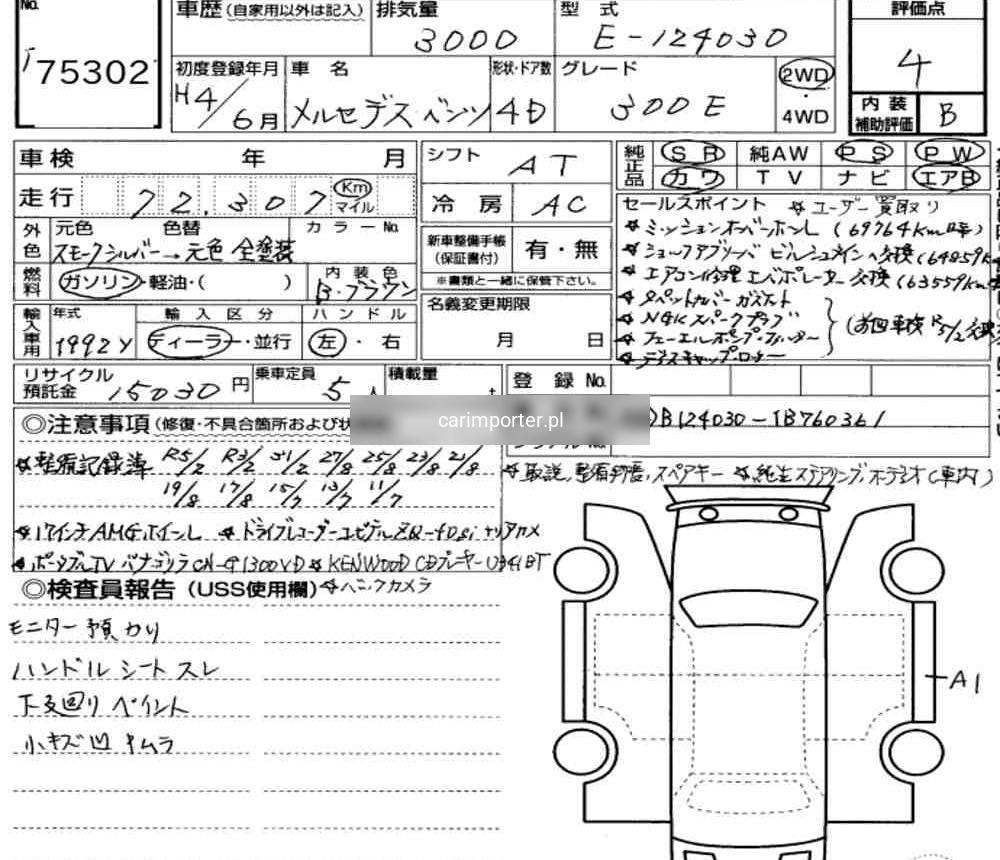 No.
75302
車歴 (自家用以外は記入) 排気量 型式 評価点
3000 E-124030 4
初度登録年月 車名 形状・ドア数 グレード 2WD ・ 4WD
H4/6月 メルセデスベンツ 4D 300E
内装補助評価 B
車検 年 月
シフト AT
純正品 SR 純AW PS PW
カワ TV ナビ エアB
走行 72,307 Km マイル
冷房 AC
セールスポイント ☆ユーザー買取り
外色 元色 色替 カラーNo.
スモークシルバー→元色 全塗装
新車整備手帳(保証書付) 有・無
※書類と一緒に保管下さい。
☆ミッションオーバーホール (69764Km時)
☆ショックアブソーバ ビルシュタインへ交換(64859K
☆エアコン修理 エバポレーター交換(63559Km
燃料 ガソリン・軽油・( ) 内装色 B・ブラウン
名義変更期限
月 日
☆タペットカバーガスケット
☆NGKスパークプラグ
☆フューエルポンプ・フィルター
☆デスキャップ・ローター
(前回車検R5/2交換
輸入車用 年式 輸入区分 ハンドル
1992y ディーラー・並行 左・右
リサイクル預託金 15030円 乗車定員 5人 積載量 t
登録No.
DB124030-1B760361
carimporter.pl
◎注意事項 (修復・不具合箇所および状
☆整備記録簿 R5/2 R3/2 31/2 27/8 25/8 23/8 21/8
19/8 17/8 15/7 13/7 11/7
☆取説、整備手帳、スペアキー ☆純正ステアリング、オーディオ(車内)
☆17インチAMGホイール ☆ドライブレコーダー コムテック ZDR-
☆ポータブルTV パナゴリラCN-G1300VD ☆KENWOOD CDプレーヤーU341BT
◎検査員報告 (USS使用欄) ☆バックカメラ
モニター預かり
ハンドル シート スレ
下廻り ペイント
小キズ 凹 キムラ
A1